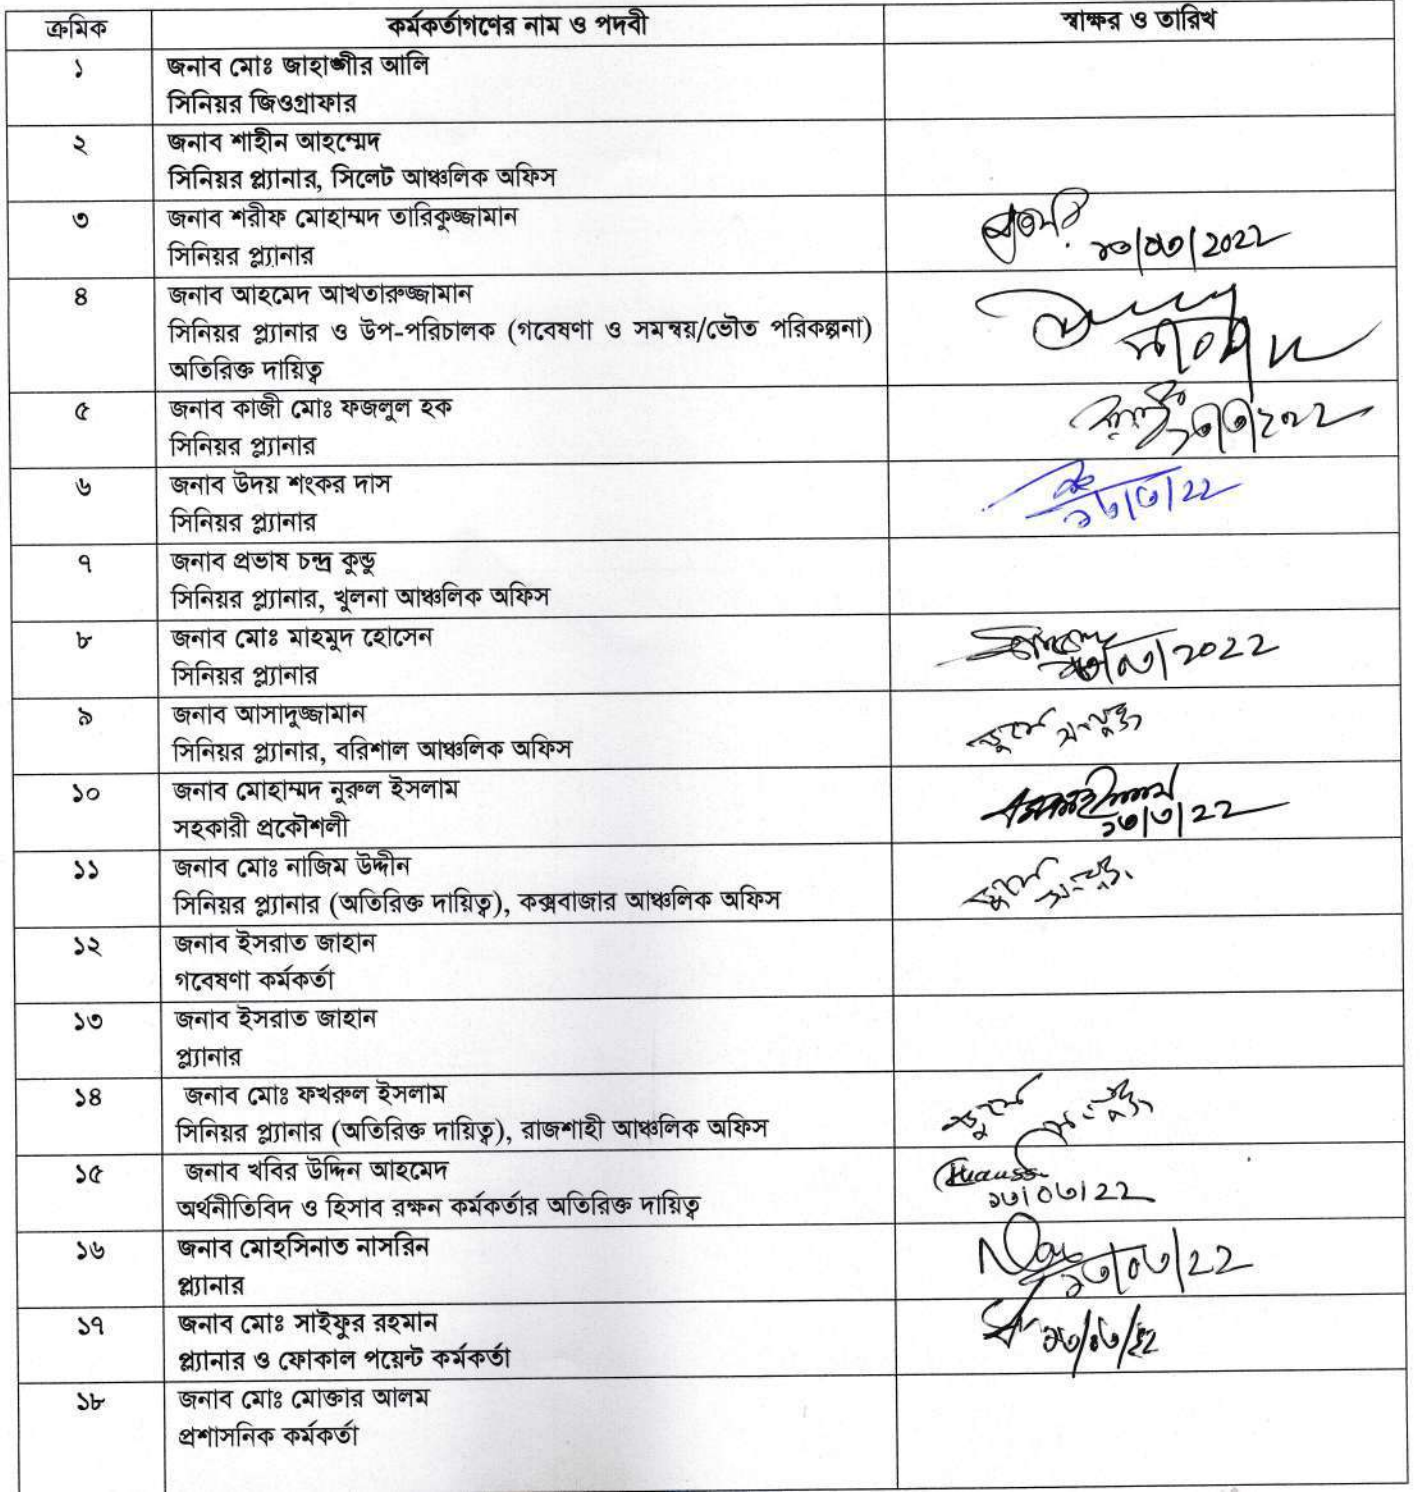 ক্রমিক কর্মকর্তাগণের নাম ও পদবী স্বাক্ষর ও তারিখ
১ জনাব মোঃ জাহাঙ্গীর আলি
সিনিয়র জিওগ্রাফার
২ জনাব শাহীন আহম্মেদ
সিনিয়র প্ল্যানার, সিলেট আঞ্চলিক অফিস
৩ জনাব শরীফ মোহাম্মদ তারিকুজ্জামান
সিনিয়র প্ল্যানার
১৩/০৩/2022
৪ জনাব আহমেদ আখতারুজ্জামান
সিনিয়র প্ল্যানার ও উপ-পরিচালক (গবেষণা ও সমন্বয়/ভৌত পরিকল্পনা)
অতিরিক্ত দায়িত্ব
৫ জনাব কাজী মোঃ ফজলুল হক
সিনিয়র প্ল্যানার
১৩/৩/২০২২
৬ জনাব উদয় শংকর দাস
সিনিয়র প্ল্যানার
১৩/৩/22
৭ জনাব প্রভাষ চন্দ্র কুন্ডু
সিনিয়র প্ল্যানার, খুলনা আঞ্চলিক অফিস
৮ জনাব মোঃ মাহমুদ হোসেন
সিনিয়র প্ল্যানার
১৩/০৩/2022
৯ জনাব আসাদুজ্জামান
সিনিয়র প্ল্যানার, বরিশাল আঞ্চলিক অফিস
জুমে সংযুক্ত
১০ জনাব মোহাম্মদ নুরুল ইসলাম
সহকারী প্রকৌশলী
১৩/৩/22
১১ জনাব মোঃ নাজিম উদ্দীন
সিনিয়র প্ল্যানার (অতিরিক্ত দায়িত্ব), কক্সবাজার আঞ্চলিক অফিস
জুমে সংযুক্ত
১২ জনাব ইসরাত জাহান
গবেষণা কর্মকর্তা
১৩ জনাব ইসরাত জাহান
প্ল্যানার
১৪ জনাব মোঃ ফখরুল ইসলাম
সিনিয়র প্ল্যানার (অতিরিক্ত দায়িত্ব), রাজশাহী আঞ্চলিক অফিস
জুমে সংযুক্ত
১৫ জনাব খবির উদ্দিন আহমেদ
অর্থনীতিবিদ ও হিসাব রক্ষন কর্মকর্তার অতিরিক্ত দায়িত্ব
১৩/০৩/22
১৬ জনাব মোহসিনাত নাসরিন
প্ল্যানার
১৩/০৩/22
১৭ জনাব মোঃ সাইফুর রহমান
প্ল্যানার ও ফোকাল পয়েন্ট কর্মকর্তা
১৩/০৩/২২
১৮ জনাব মোঃ মোক্তার আলম
প্রশাসনিক কর্মকর্তা